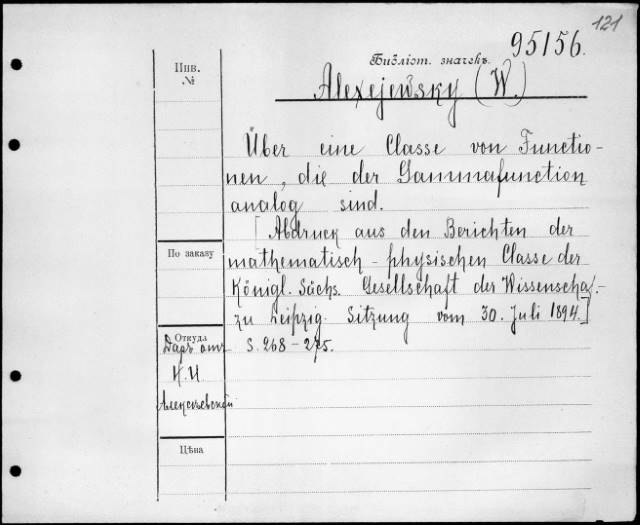 121
95156.
Инв.
№
Библіот. значекъ.
Alexejewsky (W.)
Über eine Classe von Functio-
nen, die der Gammafunction
analog sind.
[Abdruck aus den Berichten der
mathematisch-physischen Classe der
Königl. Sächs. Gesellschaft der Wissenschaf.-
zu Leipzig. Sitzung vom 30. Juli 1894.]
S. 268-275.
По заказу
Откуда
Даръ отъ
Алексѣевской
Цѣна